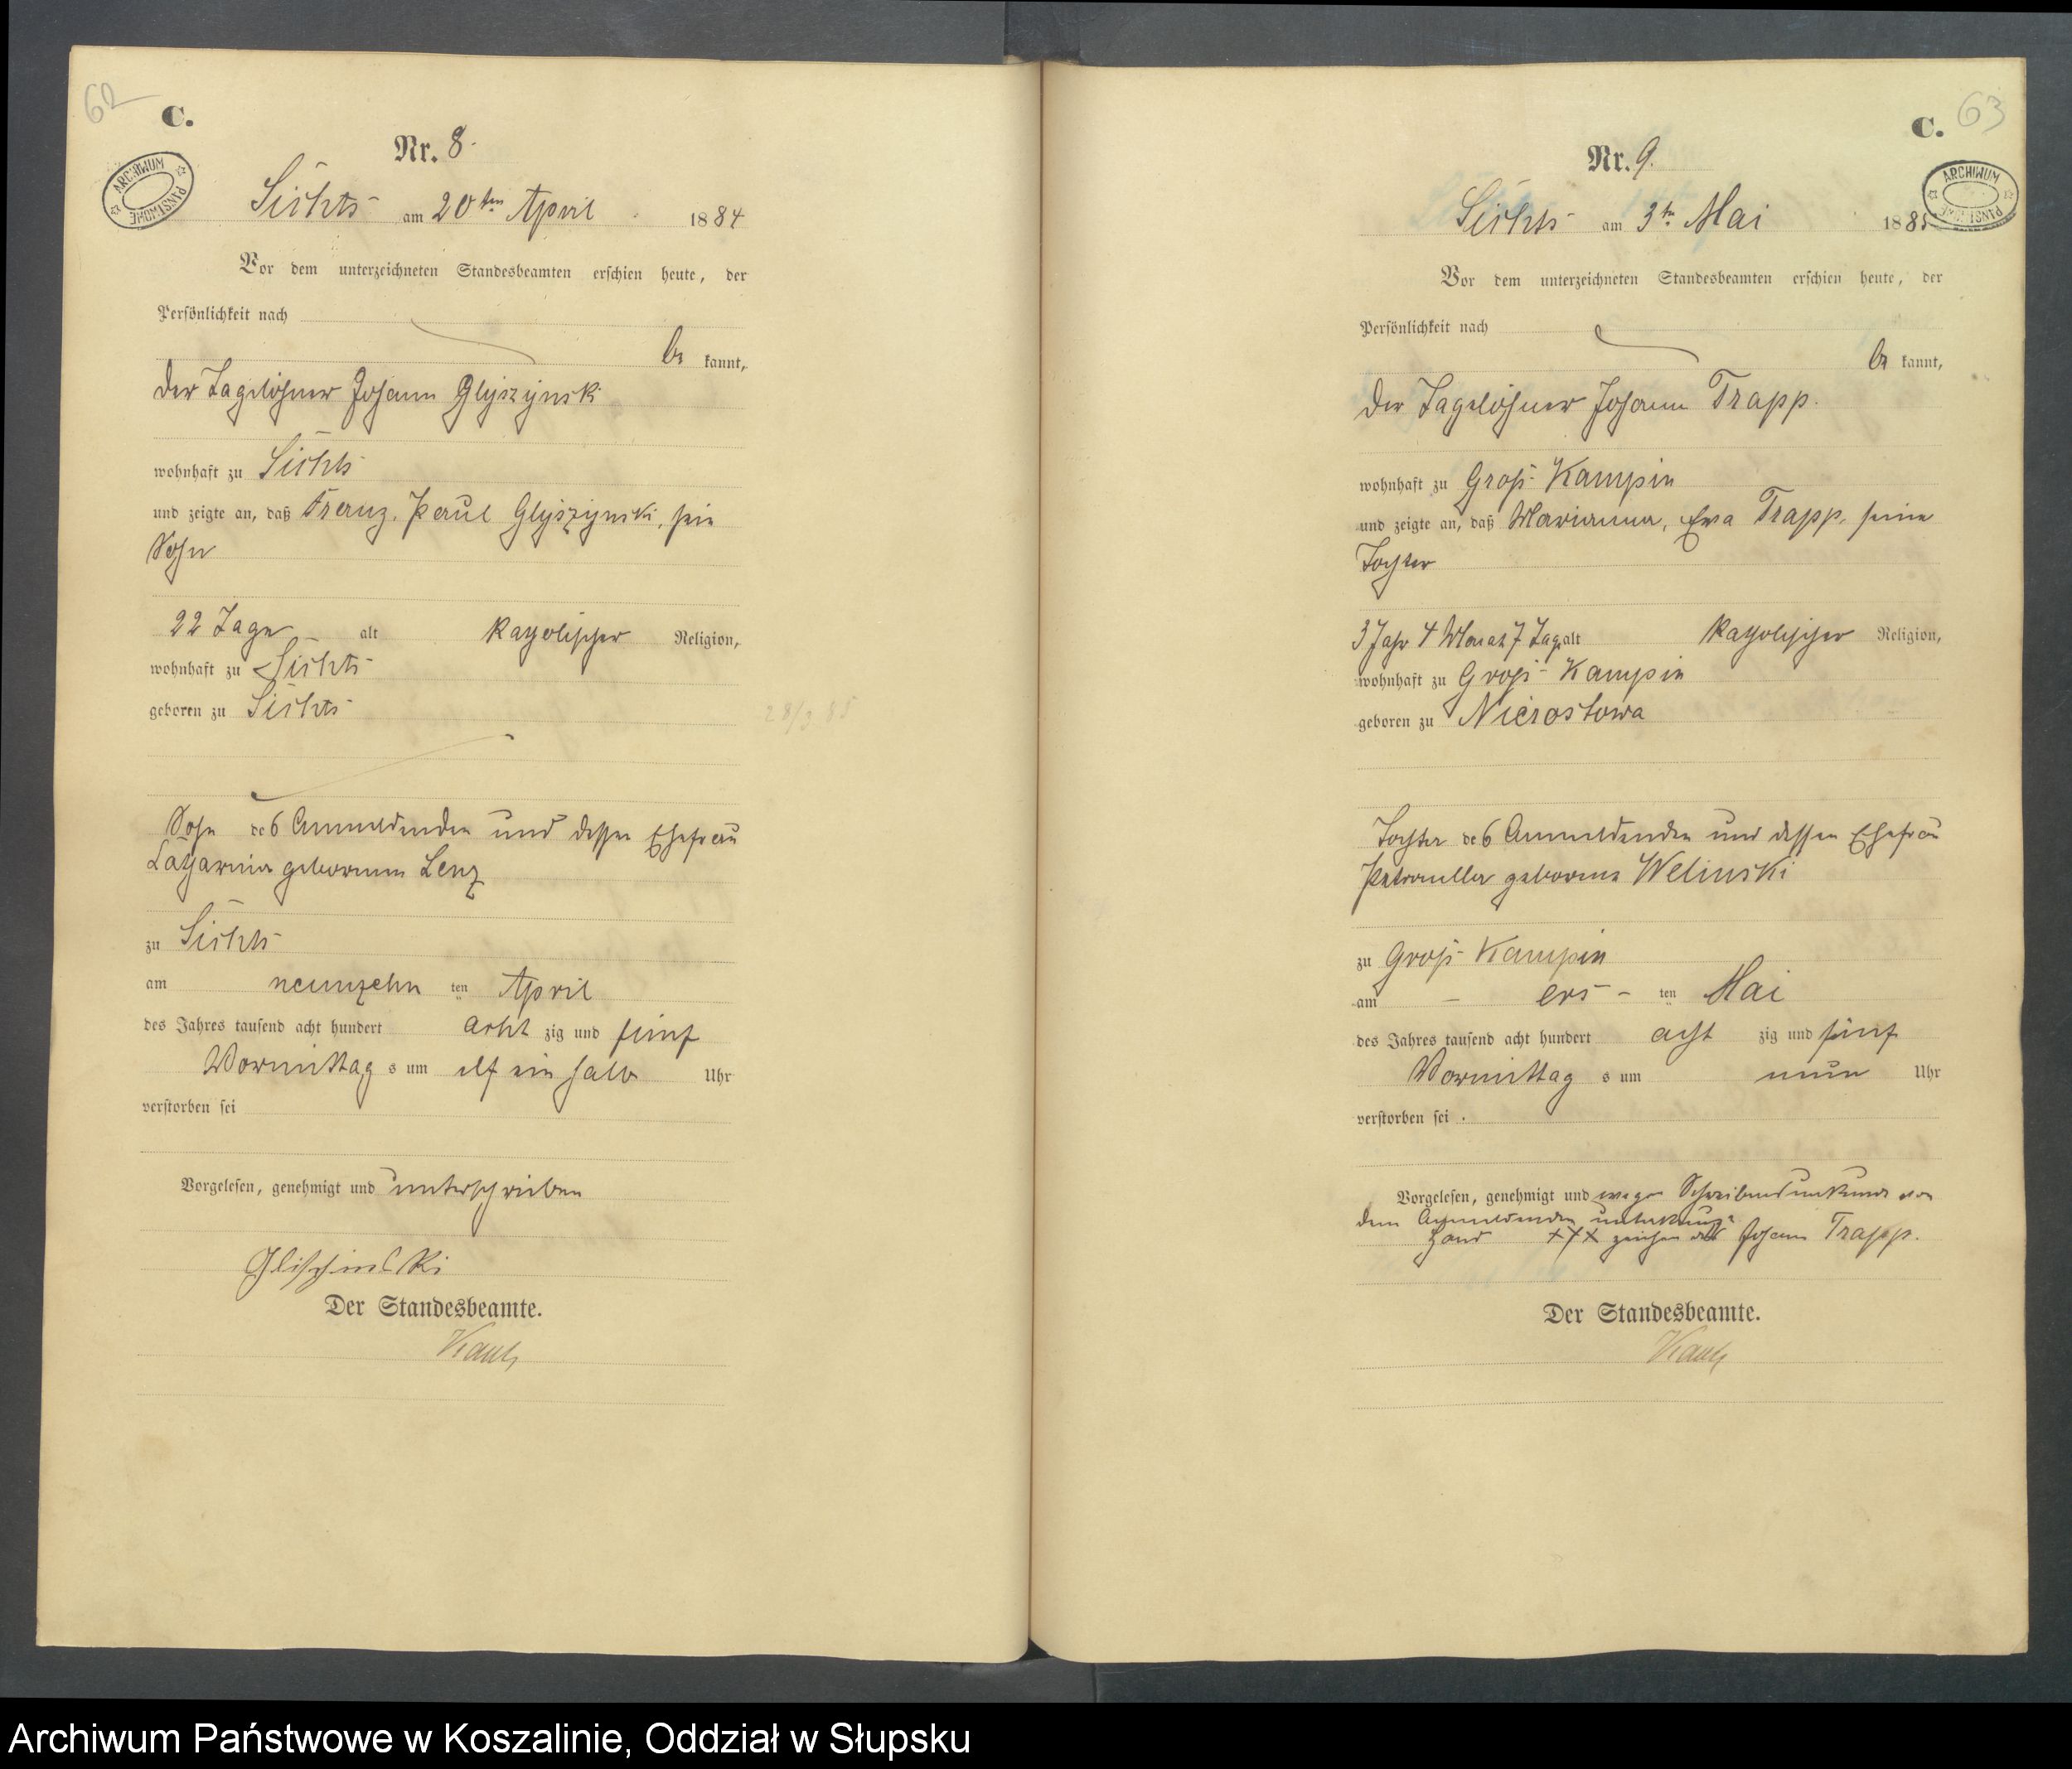 62
C.
ARCHIWUM PAŃSTWOWE
Nr. 8.
Sichts am 20ten April 1884
Vor dem unterzeichneten Standesbeamten erschien heute, der
Persönlichkeit nach
be kannt,
der Tagelöhner Johann Glyszynski
wohnhaft zu Sichts
und zeigte an, daß Franz, Paul Glyszynski, sein
Sohn
22 Tage alt katholischer Religion,
wohnhaft zu Sichts
geboren zu Sichts
28/3 85
Sohn des Anmeldenden und dessen Ehefrau
Catharina geborenen Lenz
zu Sichts
am neunzehn ten April
des Jahres tausend acht hundert acht zig und fünf
Vormittag s um elf ein halb Uhr
verstorben sei
Vorgelesen, genehmigt und unterschrieben
Glischinski
Der Standesbeamte.
63
C.
ARCHIWUM PAŃSTWOWE
Nr. 9.
Sichts am 3ten Mai 1885
Vor dem unterzeichneten Standesbeamten erschien heute, der
Persönlichkeit nach
be kannt,
der Tagelöhner Johann Trapp.
wohnhaft zu Groß-Kampin
und zeigte an, daß Marianna, Eva Trapp, seine
Tochter
3 Jahr 4 Monat 7 Tag alt katholischer Religion,
wohnhaft zu Groß-Kampin
geboren zu Nierostowa
Tochter des Anmeldenden und dessen Ehefrau
Petronella geborene Welinski
zu Groß-Kampin
am - ers- ten Mai
des Jahres tausend acht hundert acht zig und fünf
Vormittag s um neun Uhr
verstorben sei.
Vorgelesen, genehmigt und wegen Schreibensunkunde von
dem Anmeldenden unterkreuzt
Hand xxx zeichen des Johann Trapp.
Der Standesbeamte.
Archiwum Państwowe w Koszalinie, Oddział w Słupsku